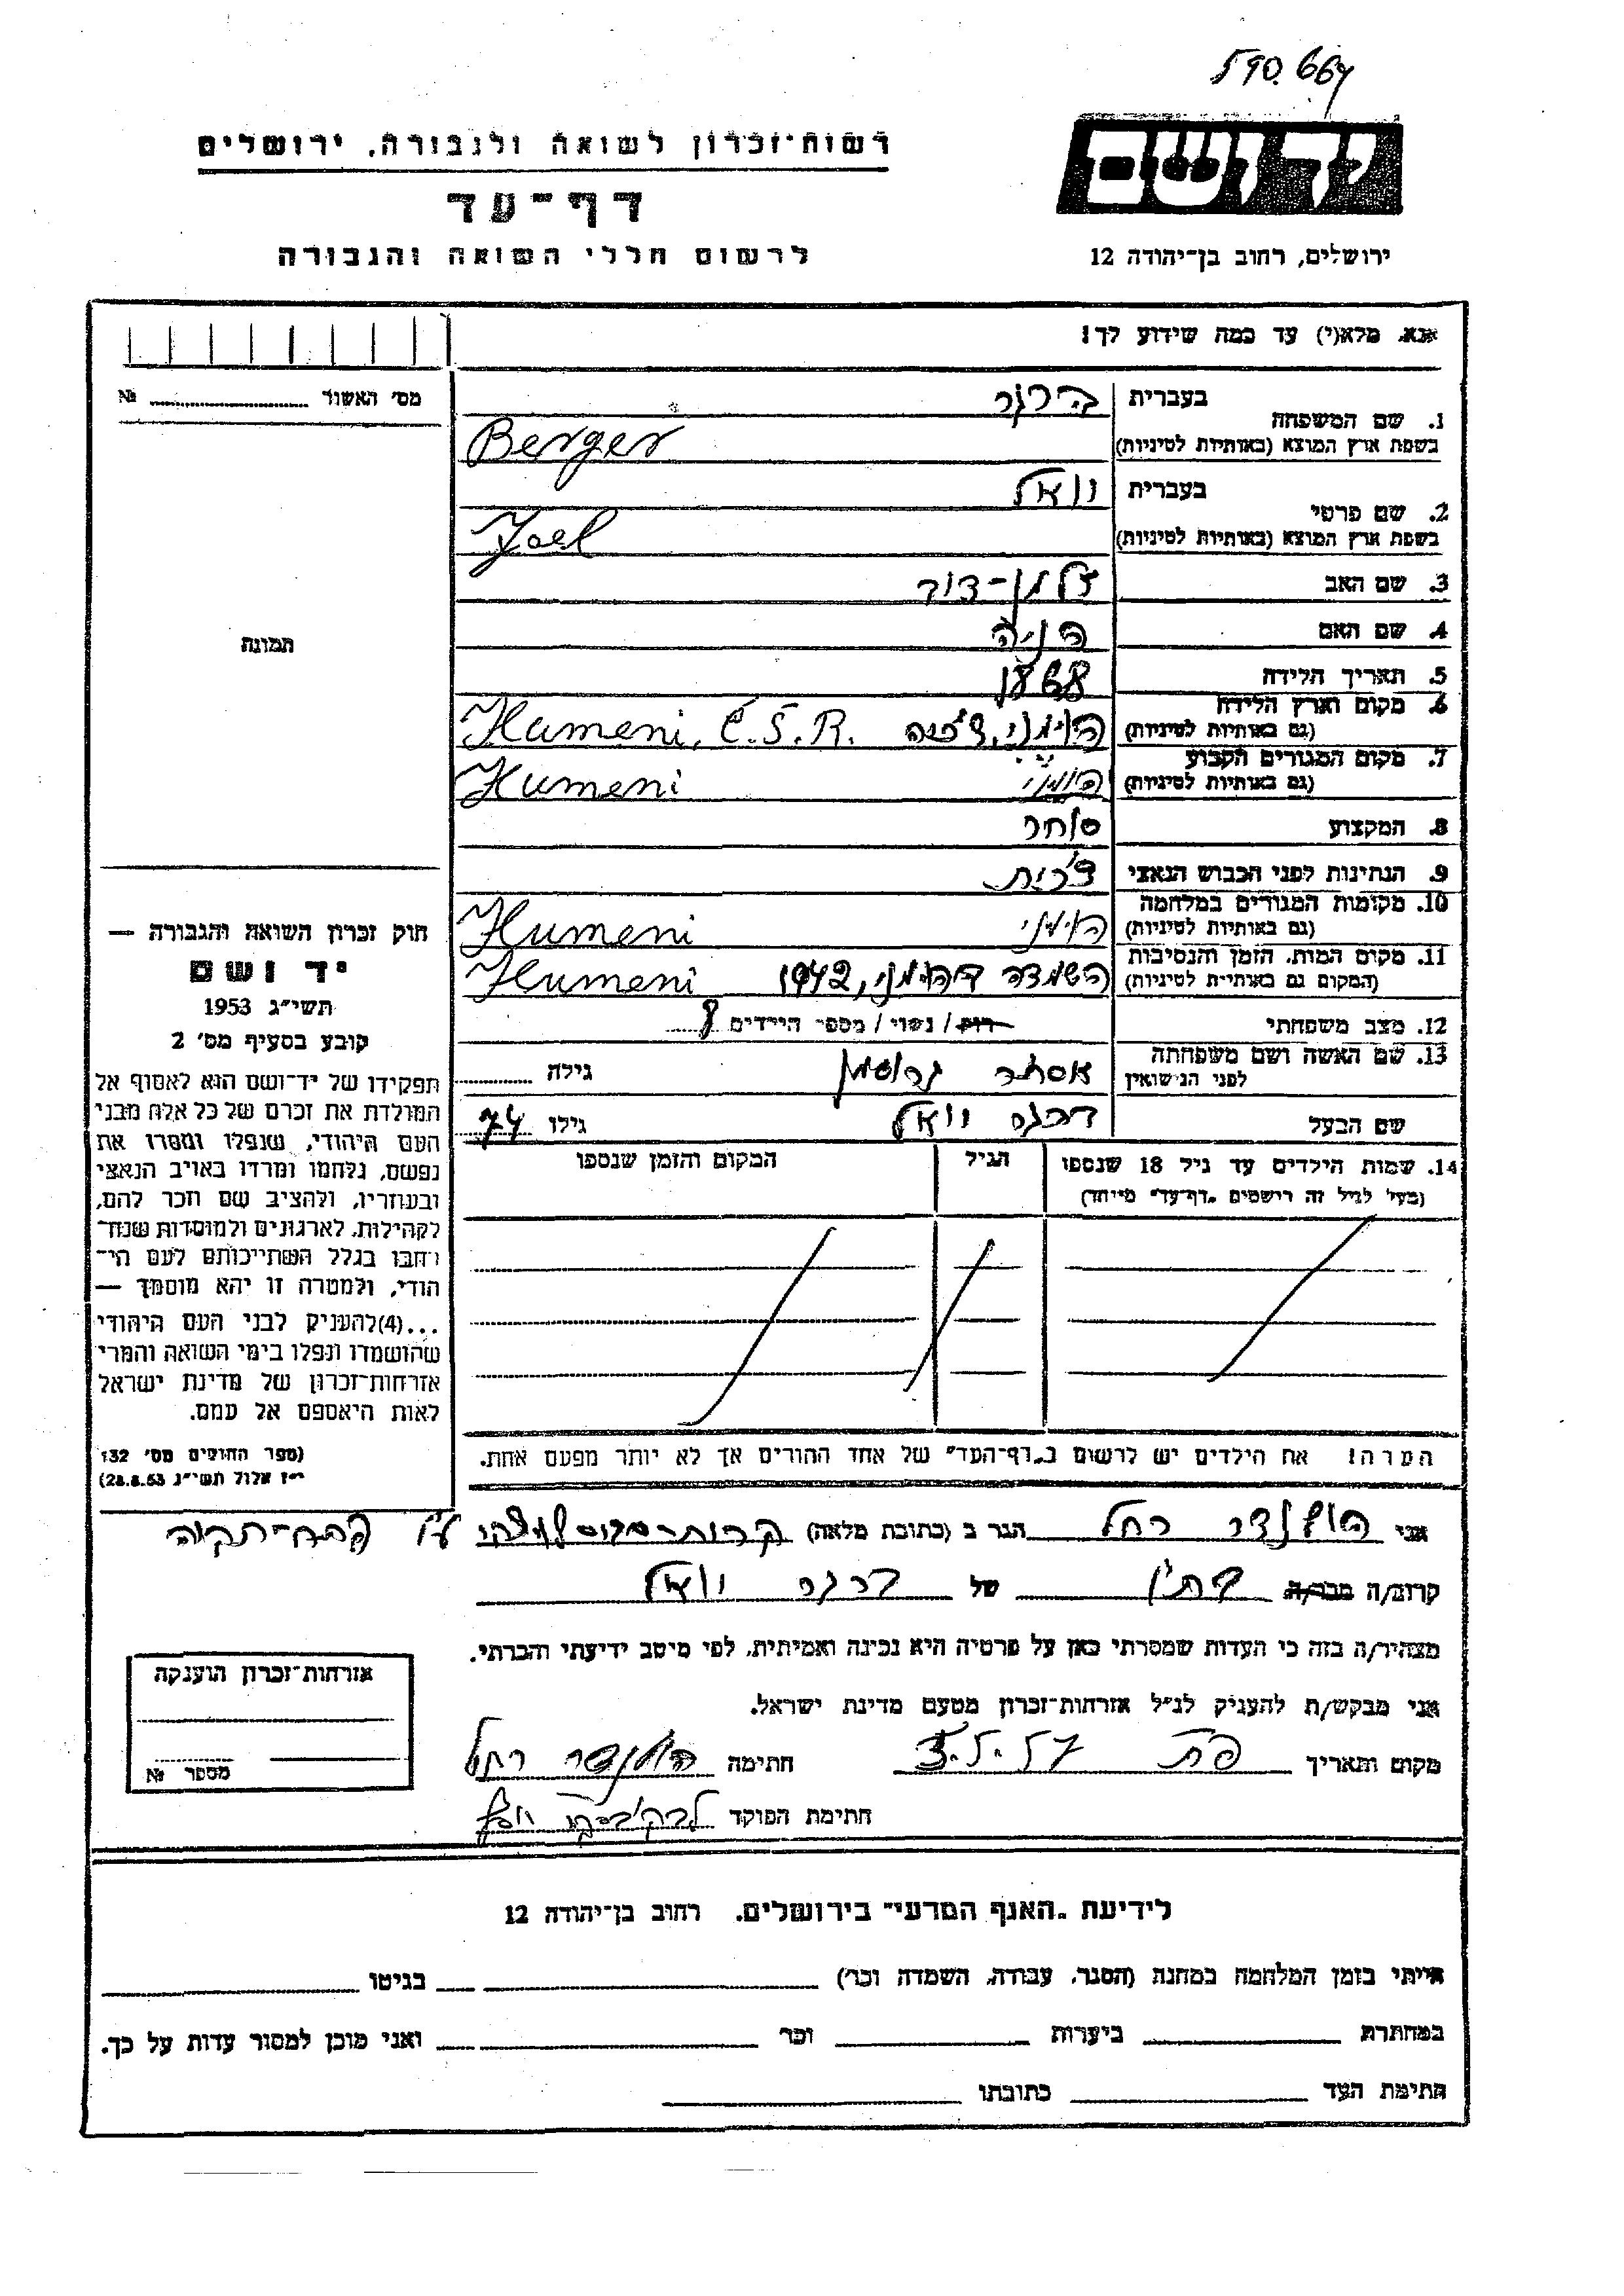 590.664
יד ושם
ירושלים, רחוב בן־יהודה 12
רשות־זכרון לשואה ולגבורה, ירושלים
דף־עד
לרשום חללי השואה והגבורה
אנא, מלא(י) עד כמה שידוע לך!
מס׳ האשור № 
1. שם המשפחה בעברית ברגר
בשפת ארץ המוצא (באותיות לטיניות) Berger
2. שם פרטי בעברית יואל
בשפת ארץ המוצא (באותיות לטיניות) Joel
3. שם האב זלמן-דוד
4. שם האם
5. תאריך הלידה 1868
6. מקום וארץ הלידה (גם באותיות לטיניות) הומני, Humeni, Č.S.R.
7. מקום המגורים הקבוע (גם באותיות לטיניות) הומני Humeni
8. המקצוע סוחר
9. הנתינות לפני הכבוש הנאצי צ'כית
10. מקומות המגורים במלחמה (גם באותיות לטיניות) הומני Humeni
11. מקום המות, הזמן והנסיבות (המקום גם באותיות לטיניות) השמדה בהומני, 1942 Humeni
12. מצב משפחתי רוק / נשוי / מספר הילדים 8
13. שם האשה ושם משפחתה לפני הנישואין אסתר גילה
שם הבעל ברגר יואל גילו 74
14. שמות הילדים עד גיל 18 שנספו הגיל המקום והזמן שנספו
(מעל לגיל זה רושמים "דף־עד" מייוחד)
הערה! את הילדים יש לרשום ב"דף־העד" של אחד ההורים אך לא יותר מפעם אחת.
תמונה
חוק זכרון השואה והגבורה —
יד ושם
תשי״ג 1953
קובע בסעיף מס׳ 2
תפקידו של יד־ושם הוא לאסוף אל
המולדת את זכרם של כל אלה מבני
העם היהודי, שנפלו ומסרו את
נפשם, נלחמו ומרדו באויב הנאצי
ובעוזריו, ולהציב שם וזכר להם,
לקהילות, לארגונים ולמוסדות שנח־
רבו בגלל השתייכותם לעם הי־
הודי, ולמטרה זו יהא מוסמך —
...(4)להעניק לבני העם היהודי
שהושמדו ונפלו בימי השואה והמרי
אזרחות־זכרון של מדינת ישראל
לאות היאספם אל עמם.
(ספר החוקים מס׳ 132
י״ז אלול תשי״ג 28.8.53)
אני רחל הגר ב (כתובת מלאה) ע"י פתח-תקוה
קרוב/ה מכר/ה של ברגר יואל
מצהיר/ה בזה כי העדות שמסרתי כאן על פרטיה היא נכונה ואמיתית, לפי מיטב ידיעתי והכרתי.
אני מבקש/ת להעניק לנ״ל אזרחות־זכרון מטעם מדינת ישראל.
מקום ותאריך פת 3.5.57 חתימה רחל
חתימת הפוקד
אזרחות־זכרון הוענקה
מספר №
לידיעת "האגף המדעי" בירושלים. רחוב בן־יהודה 12
הייתי בזמן המלחמה במחנה (הסגר, עבודה, השמדה וכו׳) בגיטו
במחתרת ביערות וכו׳ ואני מוכן למסור עדות על כך.
חתימת העד כתובתו